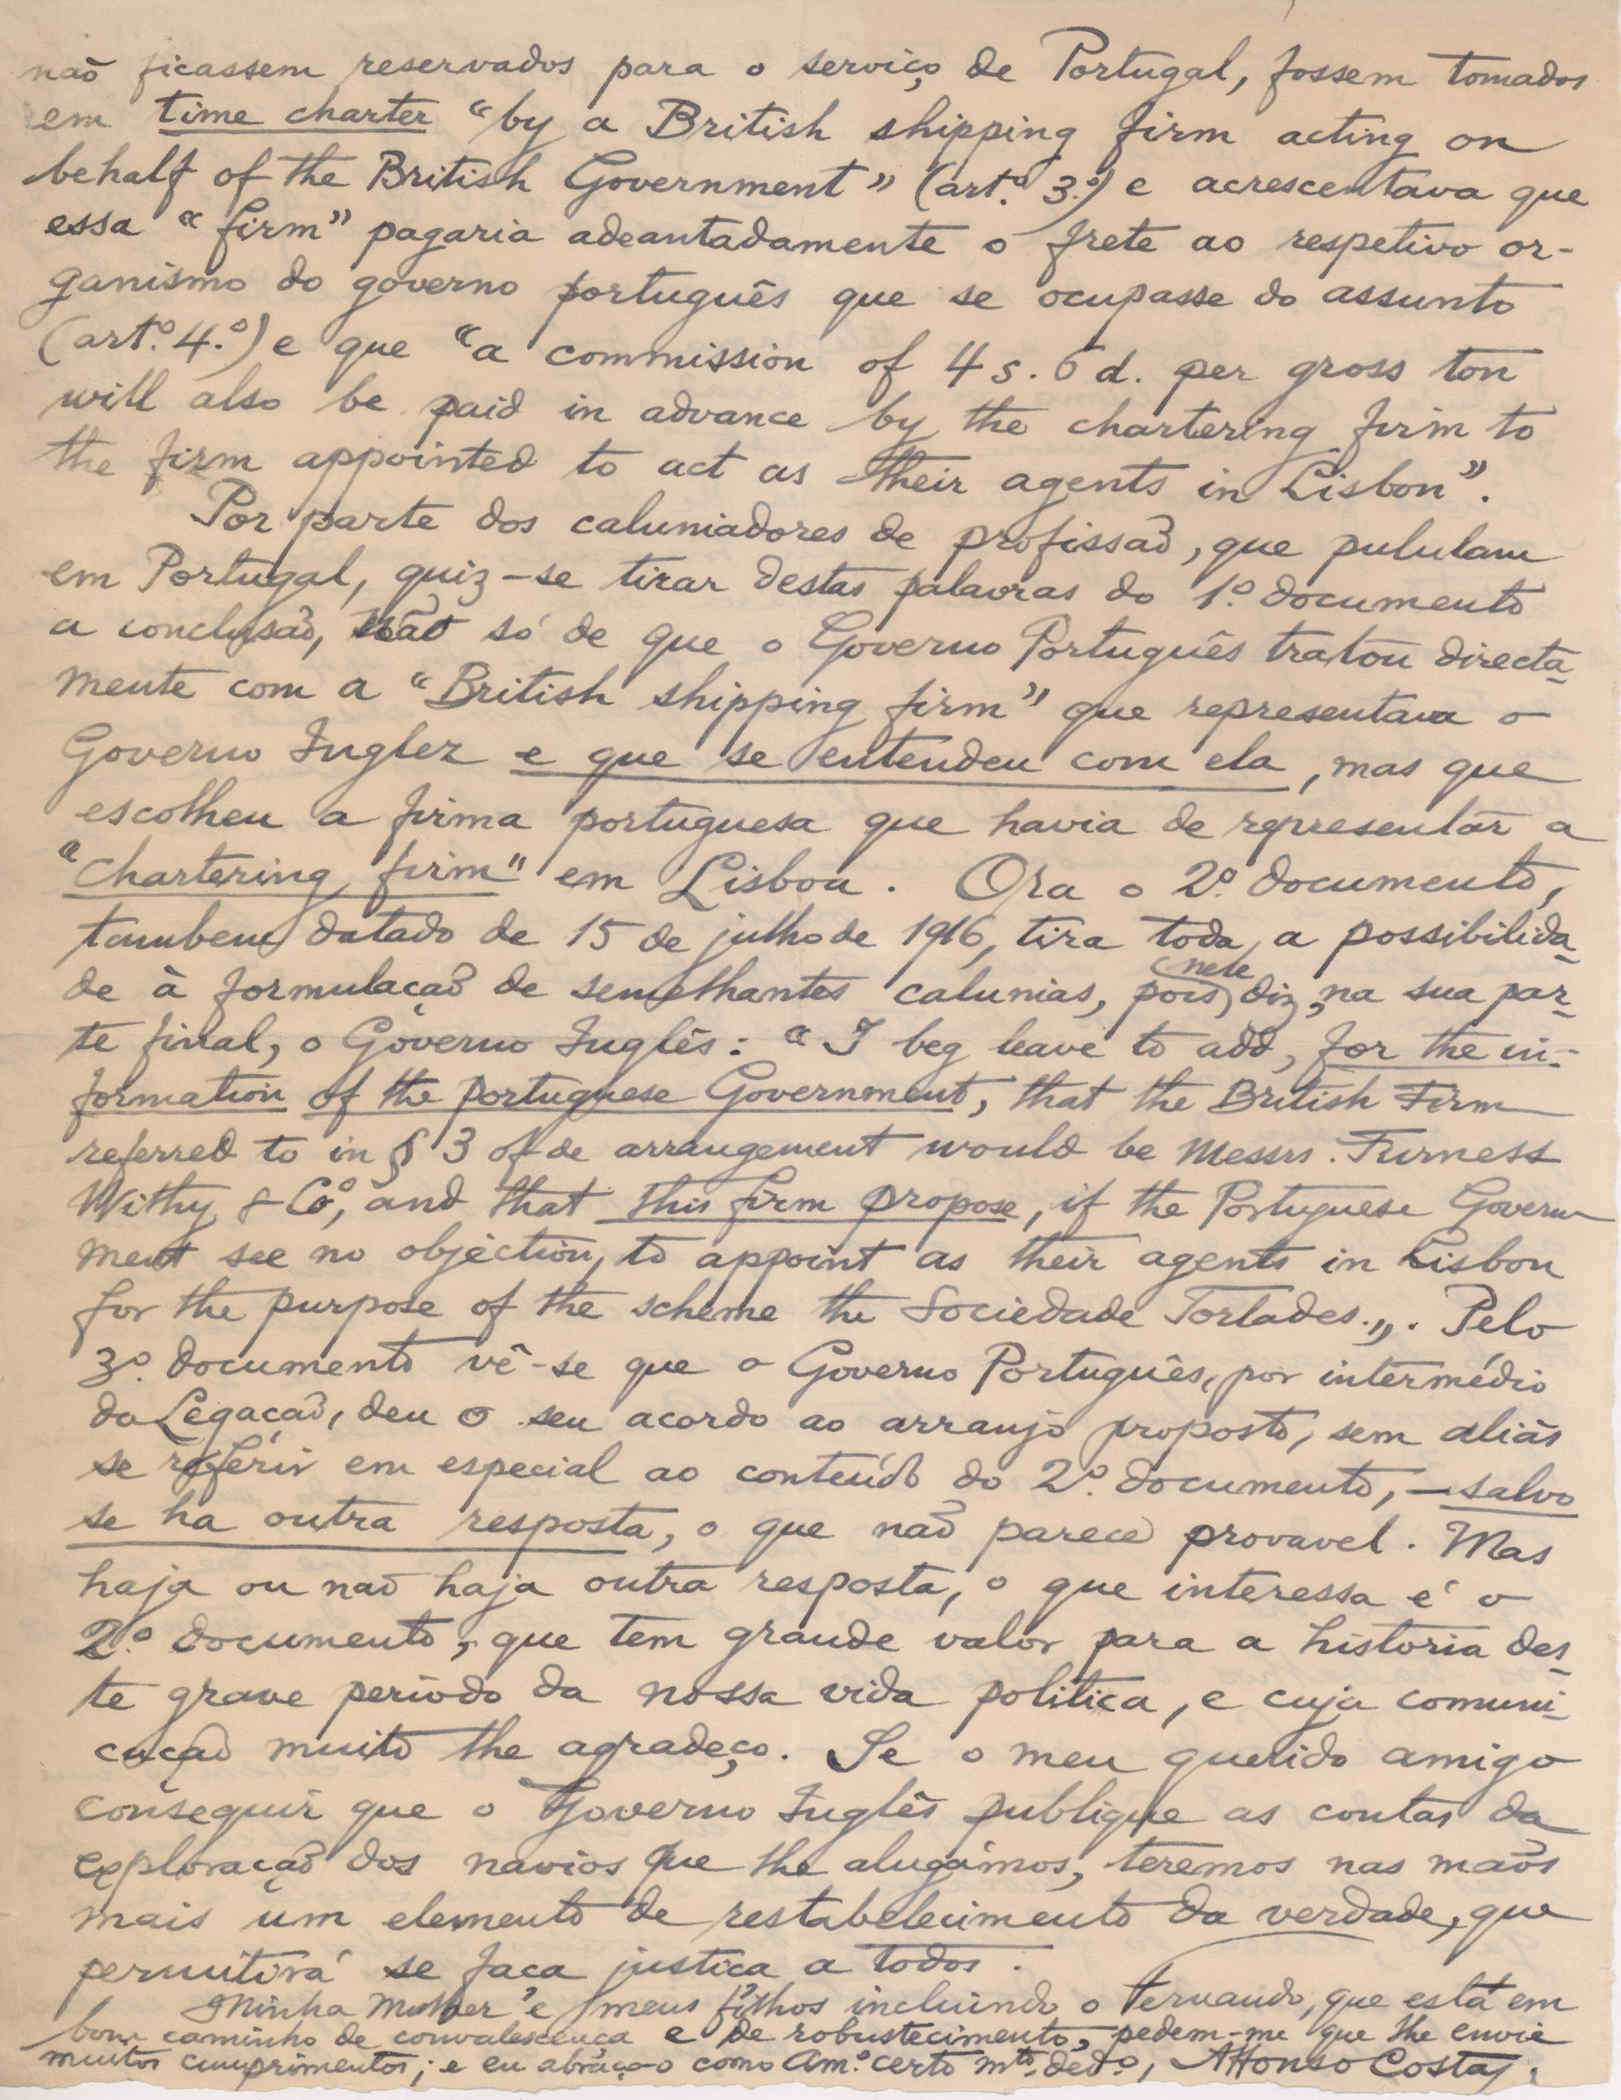 não ficassem reservados para o serviço de Portugal, fossem tomados
em time charter "by a British shipping firm acting on
behalf of the British Government" (artº. 3º.) e acrescentava que
essa "firm" pagaria adeantadamente o frete ao respetivo or-
ganismo do governo português que se ocupasse do assunto
(artº. 4.º) e que "a commission of 4 s. 6 d. per gross ton
will also be paid in advance by the chartering firm to
the firm appointed to act as their agents in Lisbon".
Por parte dos caluniadores de profissão, que pululam
em Portugal, quiz-se tirar destas palavras do 1º. documento
a conclusão, não só de que o Governo Português tratou directa-
mente com a "British shipping firm" que representava o
Governo Inglez e que se entendeu com ela, mas que
escolheu a firma portuguesa que havia de representar a
"chartering firm" em Lisboa. Ora o 2º. documento,
tambem datado de 15 de julho de 1916, tira toda a possibilida-
de à formulação de semelhantes calunias, pois nele diz, na sua par-
te final, o Governo Inglês: "I beg leave to add, for the in-
formation of the portuguese Government, that the British Firm
referred to in § 3 of de arrangement would be Messrs. Furness
Withy & Cº, and that this firm propose, if the Portuguese Govern-
ment see no objection, to appoint as their agents in Lisbon
for the purpose of the scheme the Sociedade Torlades.". Pelo
3º. documento vê-se que o Governo Português, por intermédio
da Legação, deu o seu acordo ao arranjo proposto, sem aliás
se referir em especial ao conteúdo do 2º. documento, – salvo
se ha outra resposta, o que não parece provavel. Mas
haja ou não haja outra resposta, o que interessa é o
2.º documento, que tem grande valor para a historia des-
te grave período da nossa vida politica, e cuja comuni-
cação muito lhe agradeço. Se o meu querido amigo
conseguir que o Governo Inglês publique as contas da
exploração dos navios que lhe alugámos, teremos nas mãos
mais um elemento de restabelecimento da verdade, que
permitirá se faça justiça a todos.
Minha Mulher e meus filhos incluindo o Fernando, que está em
bom caminho de convalescença e de robustecimento, pedem-me que lhe envie
muitos cumprimentos; e eu abraço-o como Amº. certo mtº. dedº., Affonso Costa.